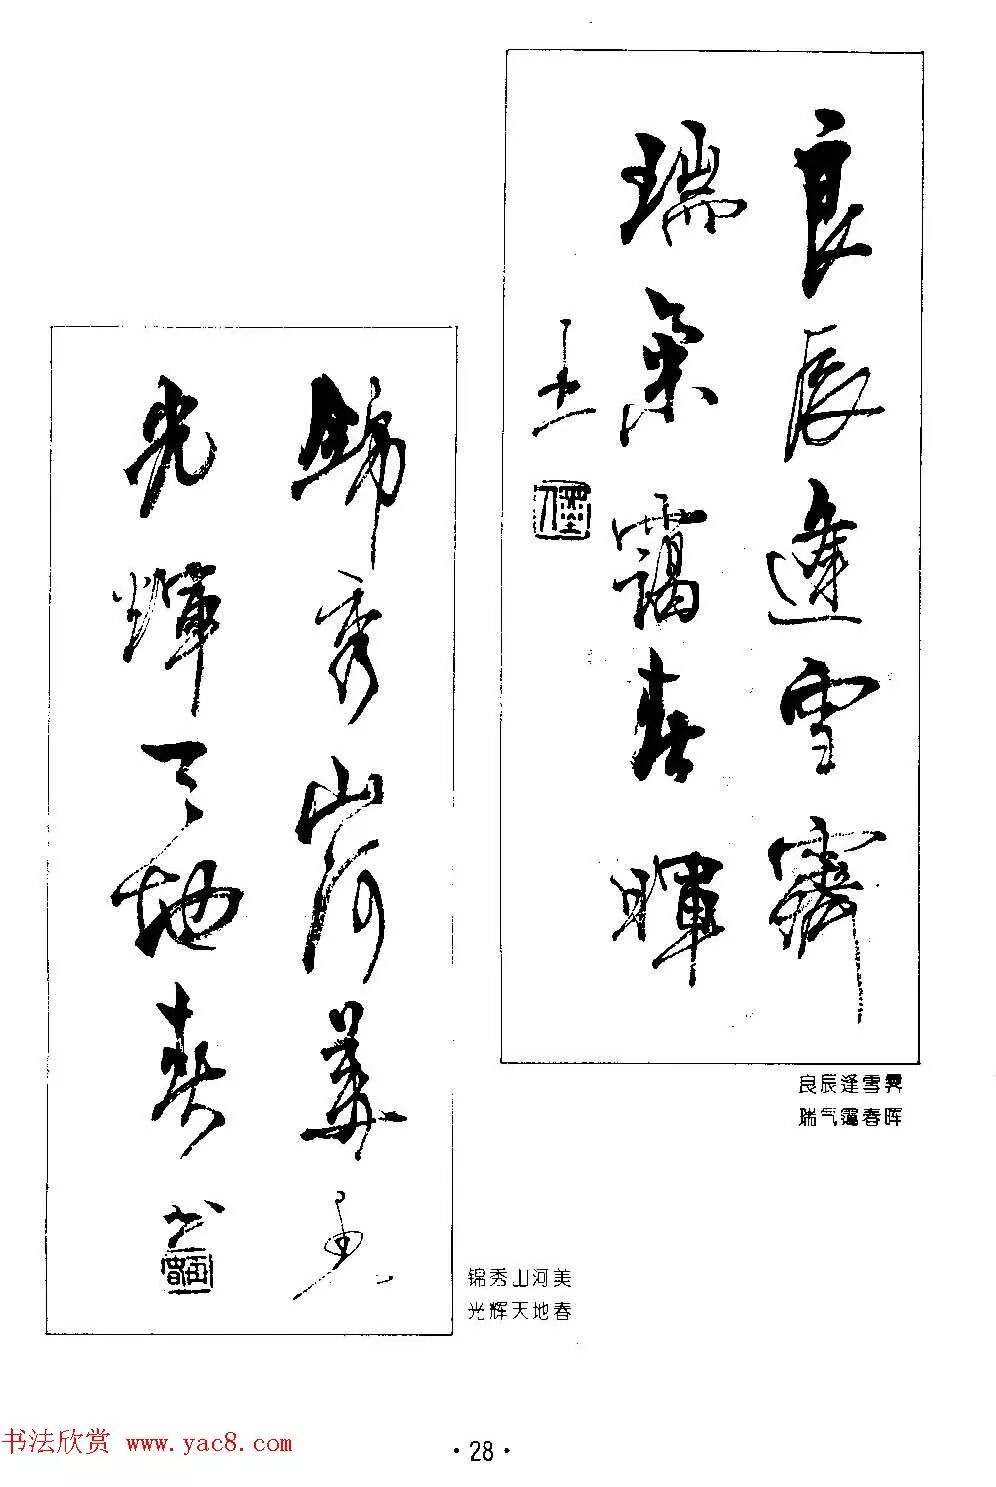 良辰逢雪霁
瑞气霭春晖
良辰逢雪霁
瑞气霭春晖
锦秀山河美
光辉天地春
书
锦秀山河美
光辉天地春
书法欣赏 www.yac8.com
·28·